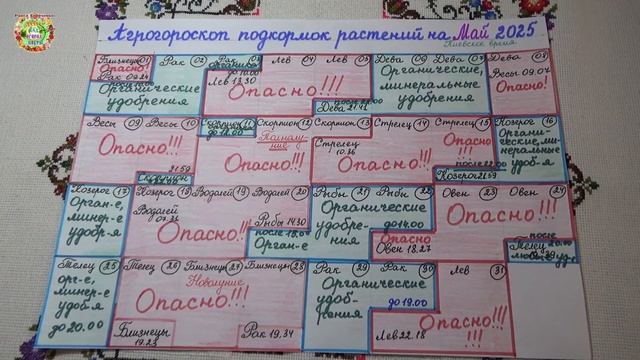 Агрогороскоп подкормок растений на Май 2025
Киевское время
Близнецы 01
Опасно!
Рак 09.24
Рак 02
Органические
удобрения
Рак 03
до 10.00
Лев 13.30
Лев 04
Лев 05
Опасно!!!
Дева 06
Дева 07
Органические,
минеральные
удобрения
Дева 08
Весы 09.07
Опасно!
Весы 09
Весы 10
Опасно!!!
21.59
11
до 18.00
Скорпион 12
Полнолуние
Опасно!!!
Скорпион 13
Стрелец
10.36
Стрелец 14
Опасно!!!
Стрелец 15
Опасно
!!!
после 22.00
Козерог 21.59
Козерог 16
Органи-
ческие, ми-
неральные
удоб-я
Козерог 17
Орган-е,
минер-е
удобр-я
Козерог 18
Водолей
Водолей 19
Опасно!!!
Водолей 20
Рыбы 14.30
после 18.00
Орган-е
Рыбы 21
Органические
удобре-
ния
Рыбы 22
до 14.00
Опасно
Овен 18.27
Овен 23
Овен 24
Опасно!!!
после
Телец 20.00
Телец 25
орг-е,
минер-е
удоб-я
до 20.00
Телец 26
Близнецы 27
Новолуние
Опасно!!!
Близнецы
19.23
Близнецы 28
Рак 19.34
Рак 29
Органические
удоб-
рения
Рак 30
до 19.00
Лев 22.18
Лев 31
Опасно!!!